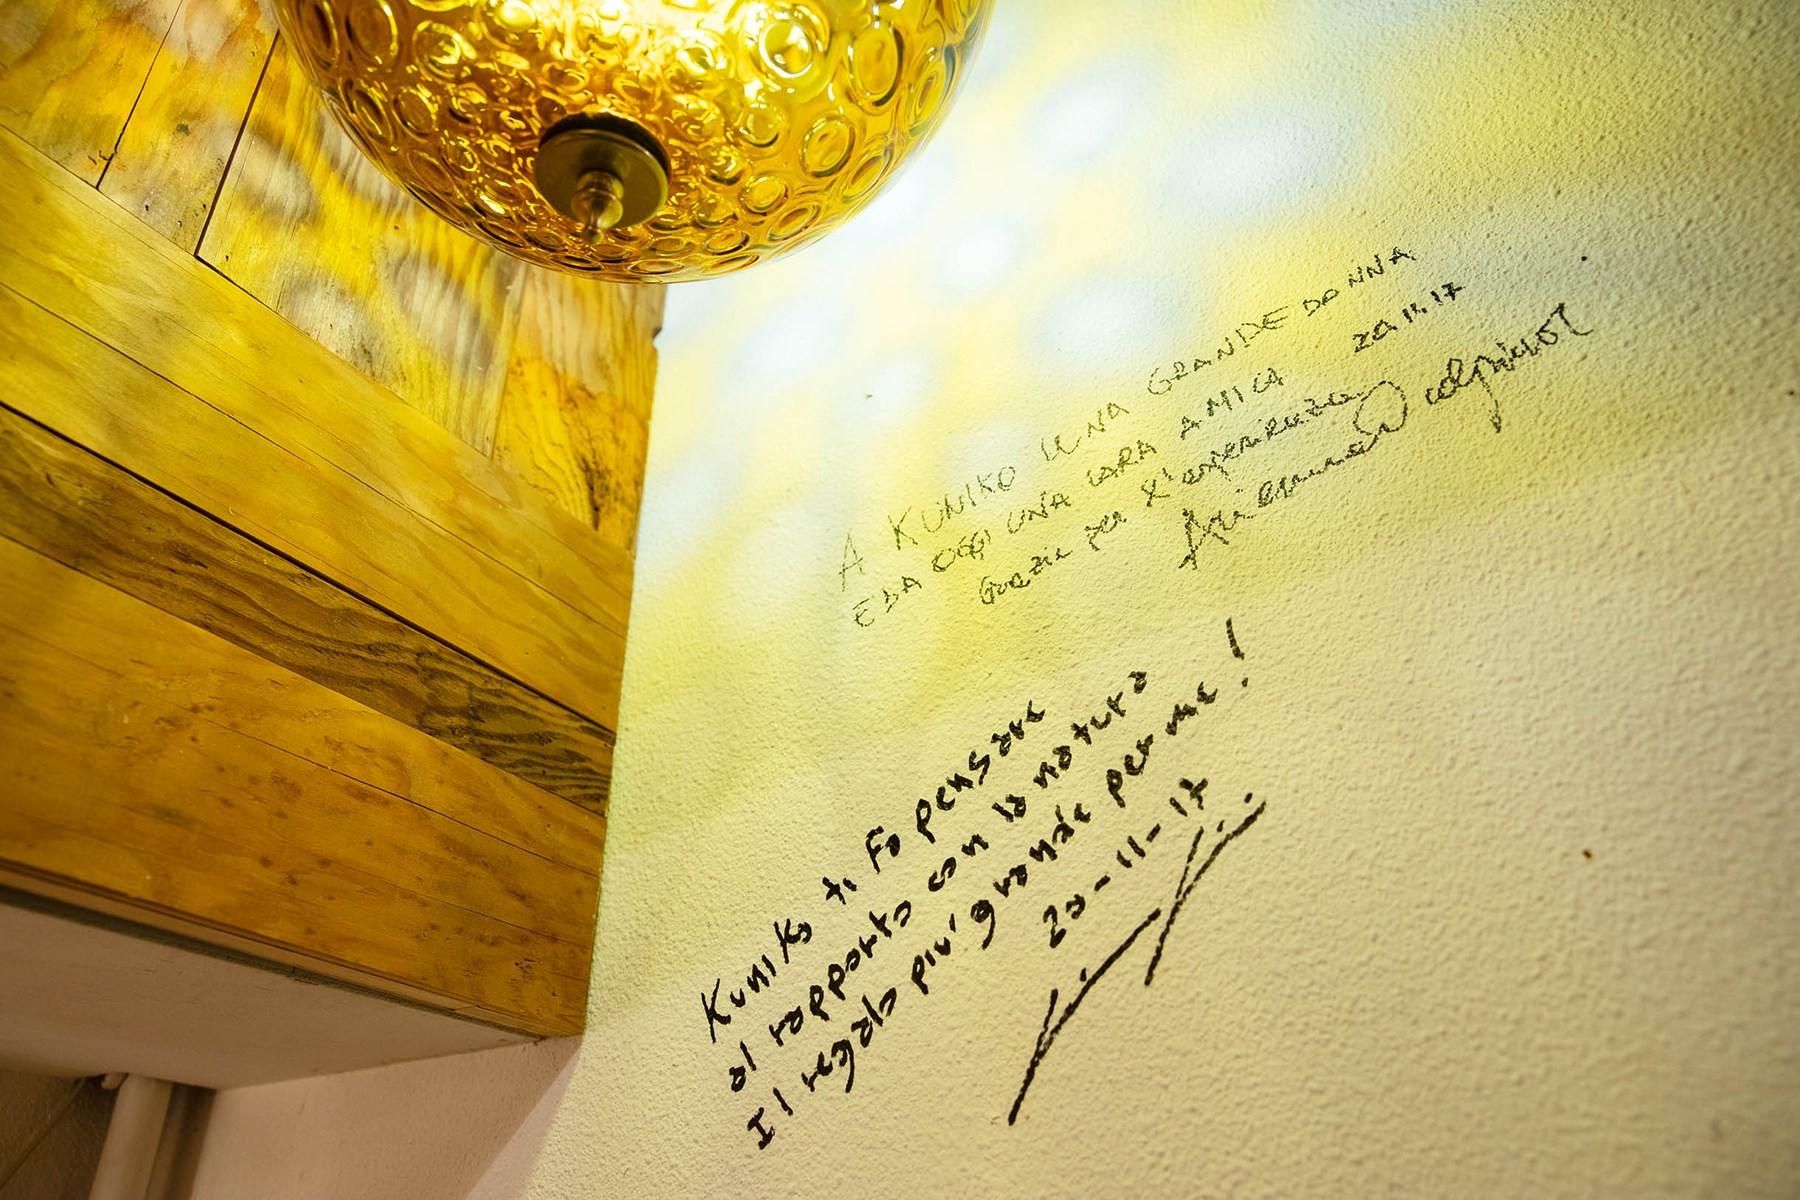 A KUNIKO UNA GRANDE DONNA
E DA OGGI UNA CARA AMICA 20.11.17
Grazie per l'esperienza
Kuniko ti fa pensare
al rapporto con la natura
Il regalo piu' grande per me!
20-11-17